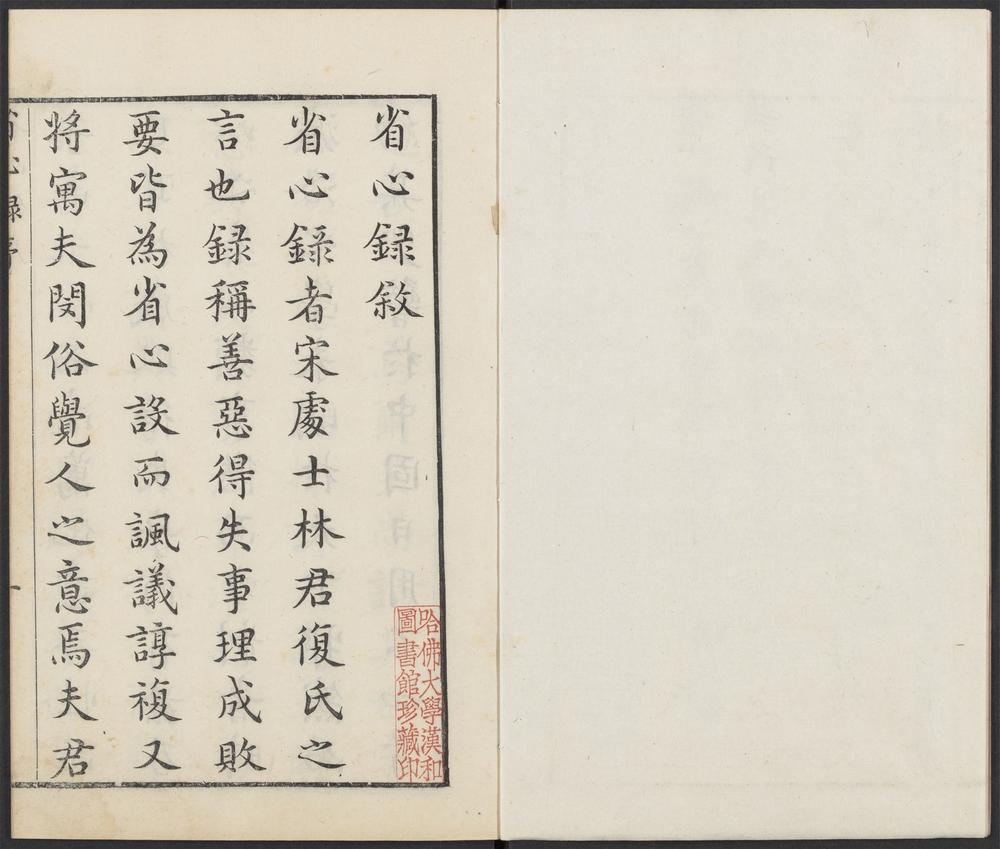 省心録敘
省心録者宋處士林君復氏之
言也録稱善惡得失事理成敗
要皆為省心設而諷議諄複又
將寓夫閔俗覺人之意焉夫君
省心録序
一
哈佛大學漢和
圖書館珍藏印